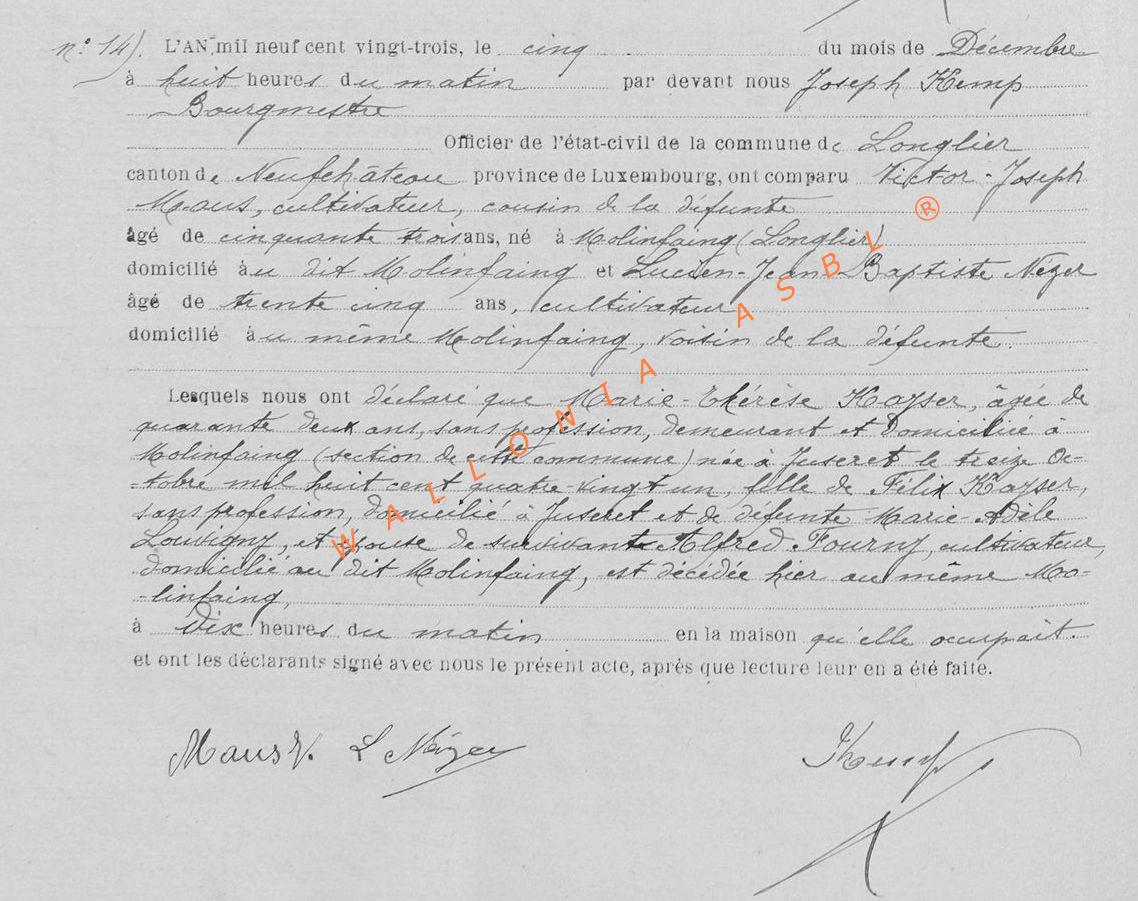 n° 14). L'AN mil neuf cent vingt-trois, le cinq du mois de Décembre
à huit heures du matin par devant nous Joseph Kemp
Bourgmestre
Officier de l'état-civil de la commune de Longlier
canton de Neufchâteau province de Luxembourg, ont comparu Victor-Joseph
Maus, cultivateur, cousin de la défunte
âgé de cinquante trois ans, né à Molinfaing (Longlier)
domicilié au dit Molinfaing et Lucien-Jean-Baptiste Nézer
âgé de trente cinq ans, cultivateur
domicilié au même Molinfaing, voisin de la défunte.
Lesquels nous ont déclaré que Marie-Thérèse Kayser, âgée de
quarante deux ans, sans profession, demeurant et domiciliée à
Molinfaing (section de cette commune) née à Juseret le treize Oc-
-tobre mil huit cent quatre-vingt un, fille de Félix Kayser,
sans profession, domicilié à Juseret et de défunte Marie-Adèle
Louvigny, et épouse de survivant Alfred Fourny, cultivateur,
domicilié au dit Molinfaing, est décédée hier au même Mo-
-linfaing,
à dix heures du matin en la maison qu'elle occupait.
et ont les déclarants signé avec nous le présent acte, après que lecture leur en a été faite.
Maus V. L Nézer Kemp
WALLONIA ASBL ®